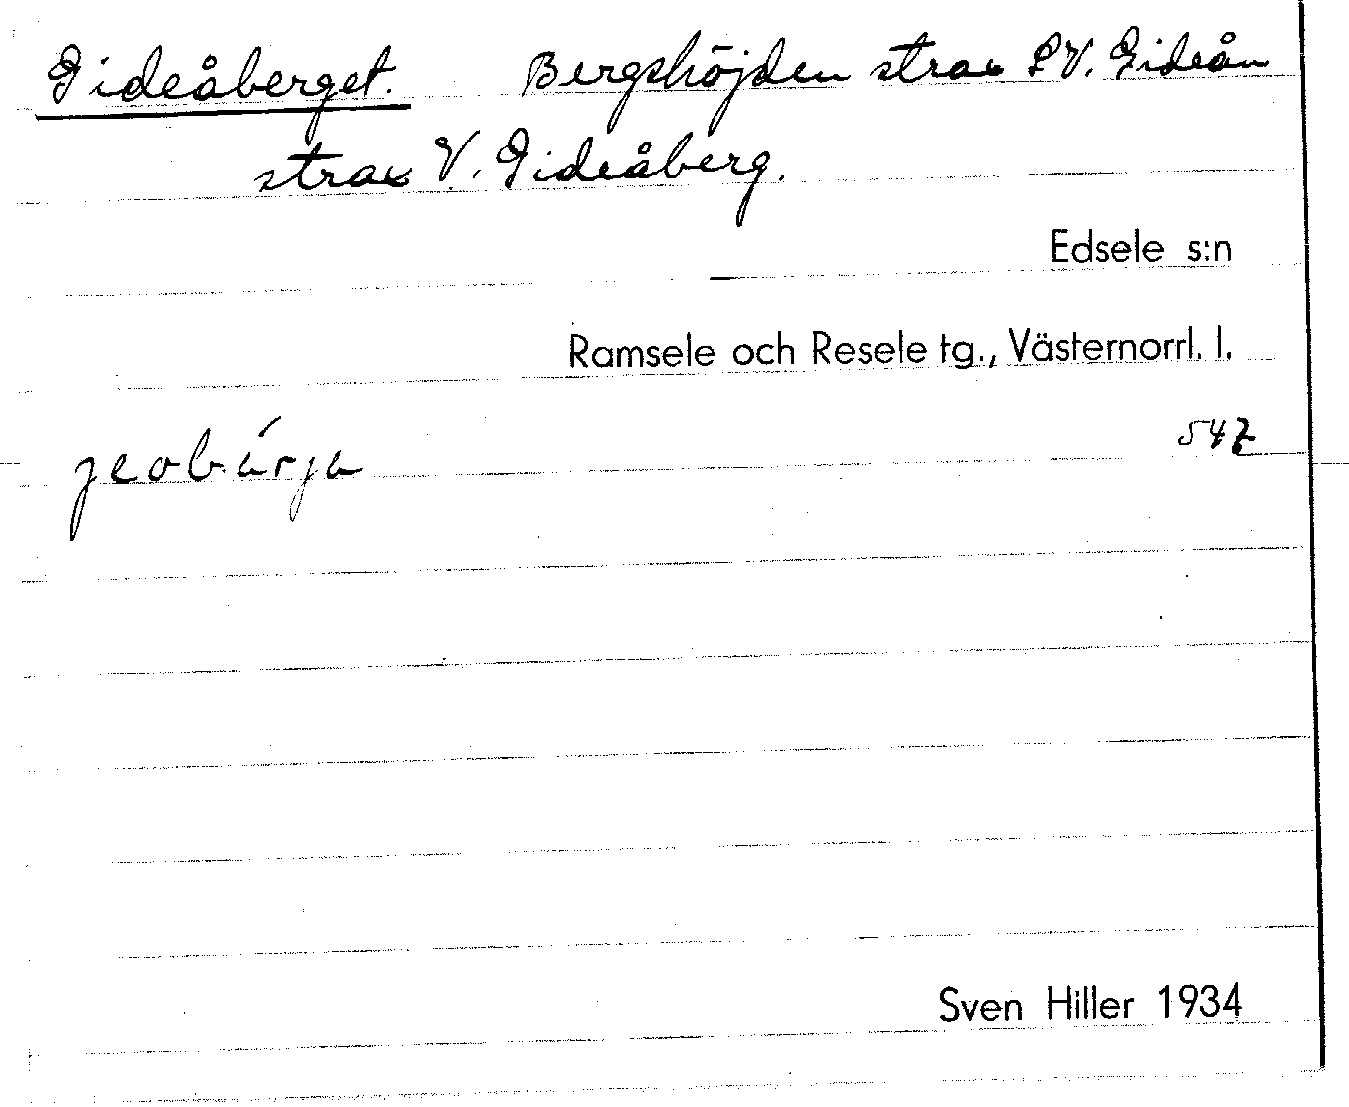 Gideåberget. Bergshöjden strax SV. Gideån
strax V. Gideåberg.
Edsele s:n
Ramsele och Resele tg., Västernorrl. l.
547
Sven Hiller 1934